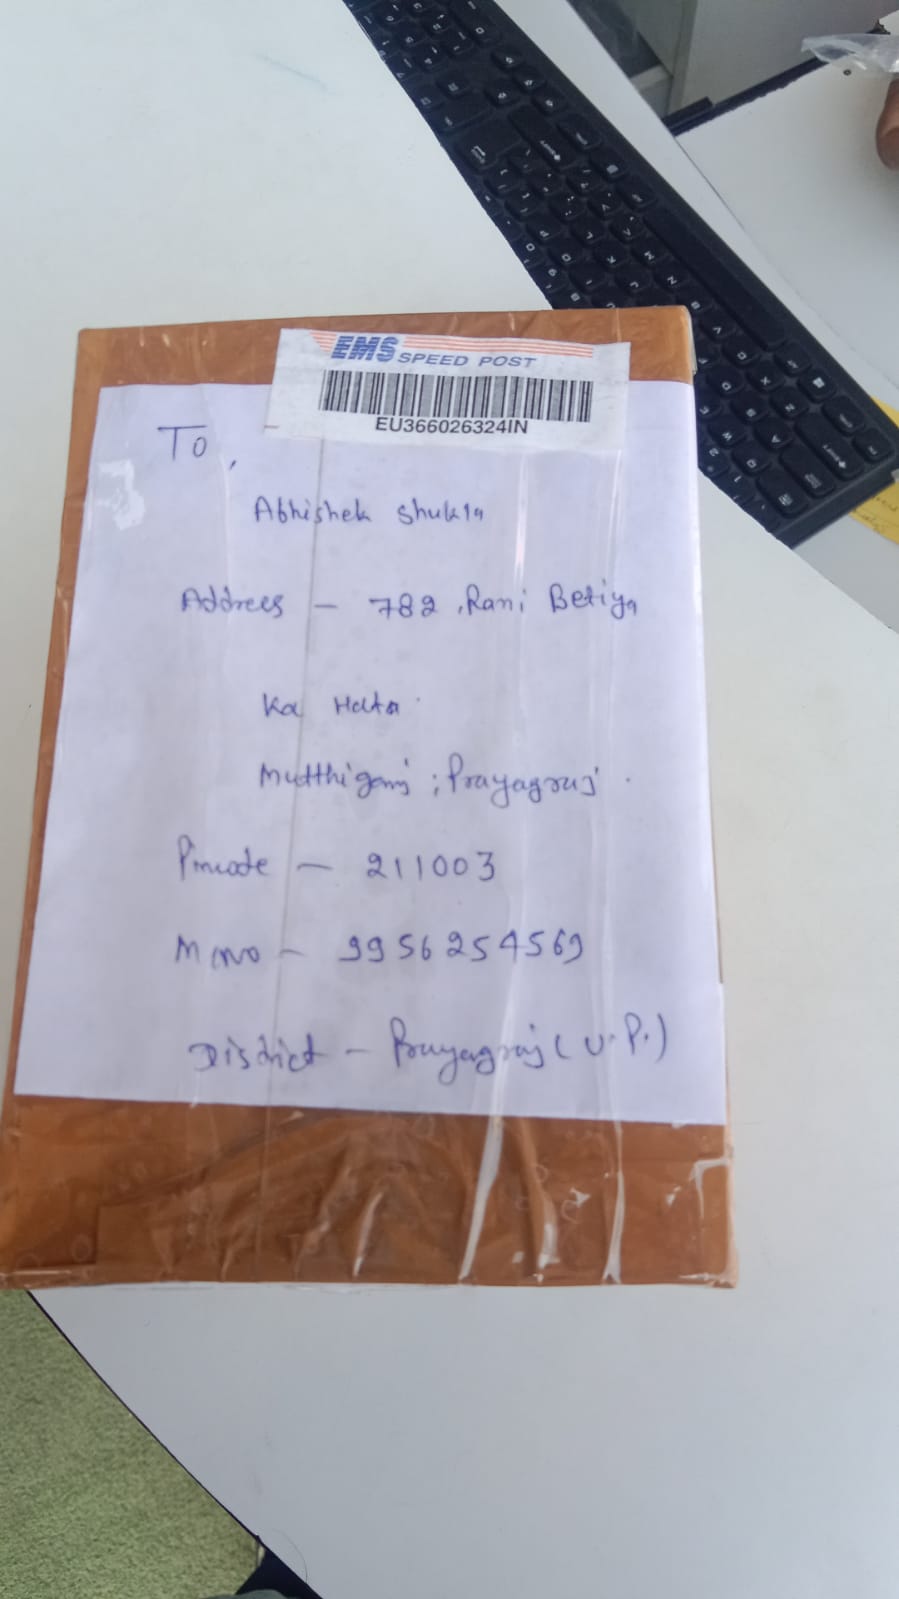 EMS SPEED POST
EU366026324IN
To,
Abhishek Shukla
Address - 782, Rani Betiya
Ka Hata
Mutthiganj ; Prayagraj
Pincode - 211003
M.No - 9956254569
District - Prayagraj (U.P.)